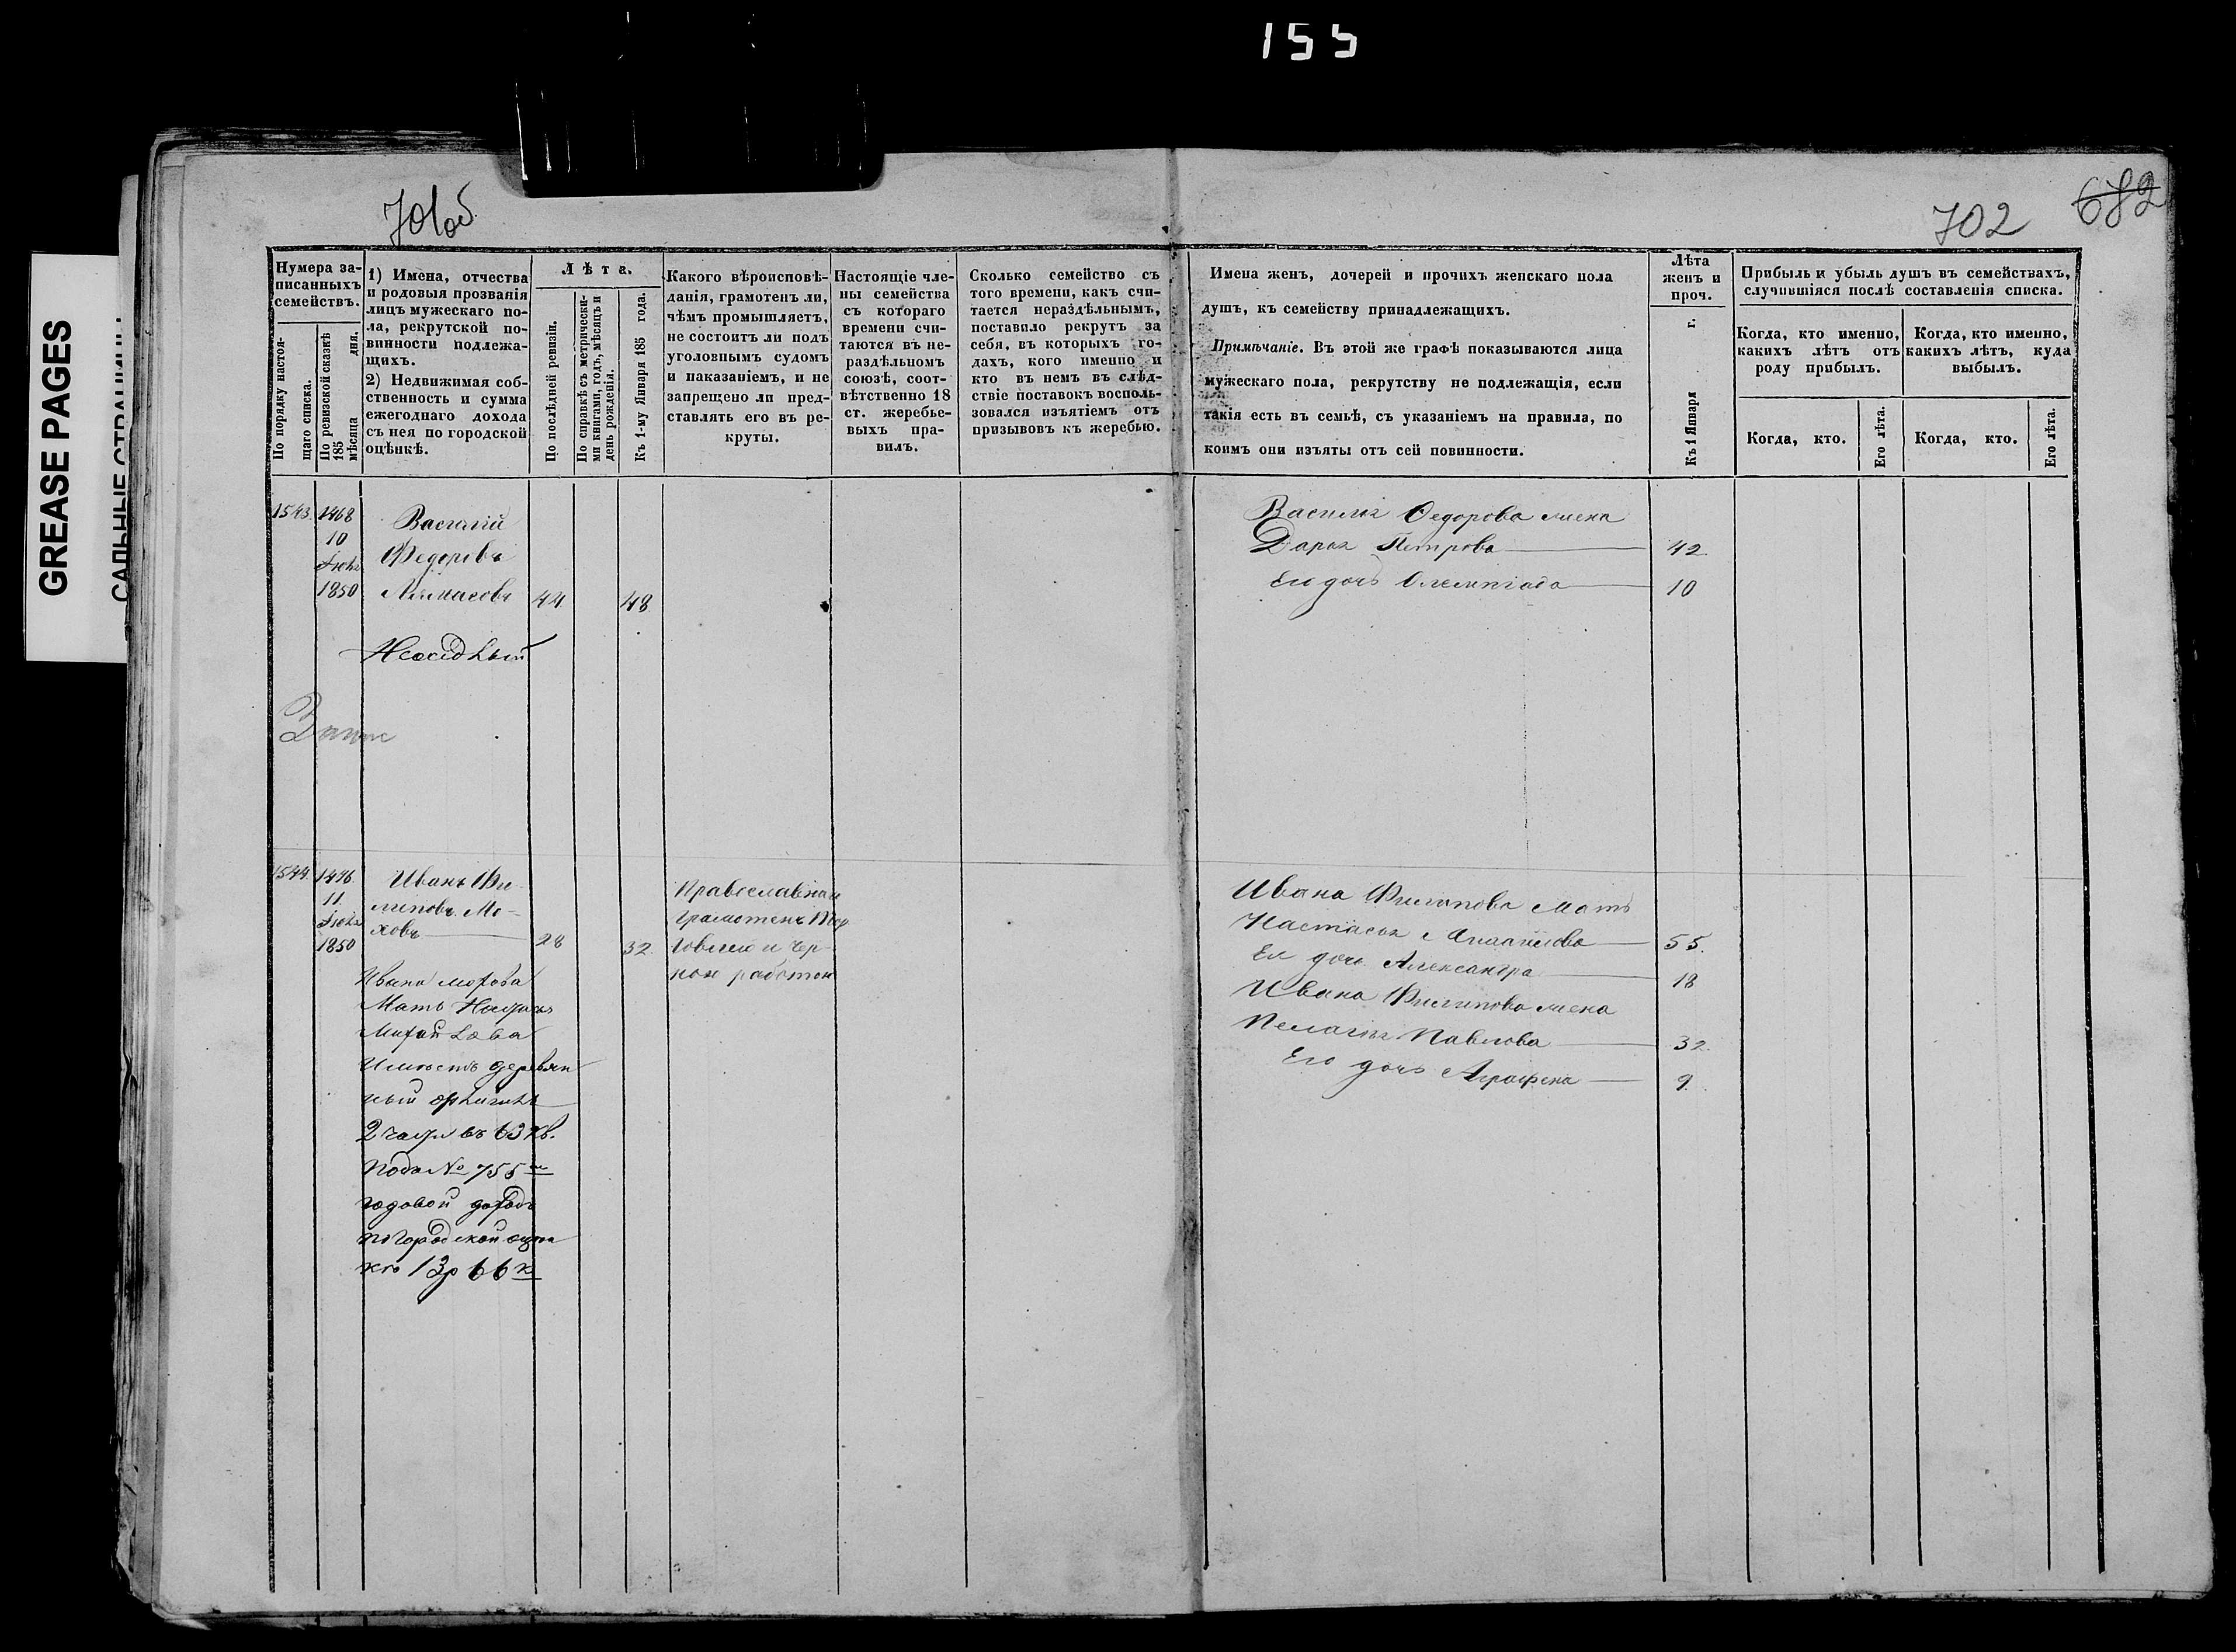 155
GREASE PAGES
САЛЬНЫЕ СТРАНИЦЫ
701об
702
682
Нумера за-
писанныхъ
семействъ.
По порядку настоя-
щаго списка.
По ревизской сказкѣ
185
мѣсяца дня.
1) Имена, отчества
и родовыя прозванія
лицъ мужескаго по-
ла, рекрутской по-
винности подлежа-
щихъ.
2) Недвижимая соб-
ственность и сумма
ежегоднаго дохода
съ нея по городской
оцѣнкѣ.
Лѣта.
По послѣдней ревизіи.
По справкѣ съ метрически-
ми книгами, годъ, мѣсяцъ и
день рожденія.
Къ 1-му Января 185 года.
Какого вѣроисповѣ-
данія, грамотенъ ли,
чѣмъ промышляетъ,
не состоитъ ли подъ
уголовнымъ судомъ
и наказаніемъ, и не
запрещено ли пред-
ставлять его въ ре-
круты.
Настоящіе чле-
ны семейства
съ котораго
времени счи-
таются въ не-
раздѣльномъ
союзѣ, соот-
вѣтственно 18
ст. жеребье-
выхъ пра-
вилъ.
Сколько семейство съ
того времени, какъ счи-
тается нераздѣльнымъ,
поставило рекрутъ за
себя, въ которыхъ го-
дахъ, кого именно и
кто въ немъ въ слѣд-
ствіе поставокъ восполь-
зовался изъятіемъ отъ
призывовъ къ жеребью.
Имена женъ, дочерей и прочихъ женскаго пола
душъ, къ семейству принадлежащихъ.
Примѣчаніе. Въ этой же графѣ показываются лица
мужескаго пола, рекрутству не подлежащія, если
такія есть въ семьѣ, съ указаніемъ на правила, по
коимъ они изъяты отъ сей повинности.
Лѣта
женъ и
проч.
Къ 1 Января г.
Прибыль и убыль душъ въ семействахъ,
случившіяся послѣ составленія списка.
Когда, кто именно,
какихъ лѣтъ отъ
роду прибылъ.
Когда, кто именно,
какихъ лѣтъ, куда
выбылъ.
Когда, кто.
Его лѣта.
Когда, кто.
Его лѣта.
1543. 1468
10
1850
Василій
Федоровъ
44 48
Василія Федорова жена
Дарья Петрова 42
Его дочь Олимпіада 10
1544. 1476.
11
1850
Иванъ Фи-
липовъ Мо-
ховъ 28 32
Ивана Мохова
Мать Настасья
Михайлова
Имѣетъ деревян
ный
2 части въ 63 кв.
подъ № 755
годовой доходъ
по городской оцѣн
кѣ 13р 66к
Православная
грамотенъ Тор
говлею и чер-
ною работою
Ивана Филипова мать
Настасья 55.
Ея дочь Александра 18
Ивана Филипова жена
Пелагея Павлова 32.
Его дочь Аграфена 9.